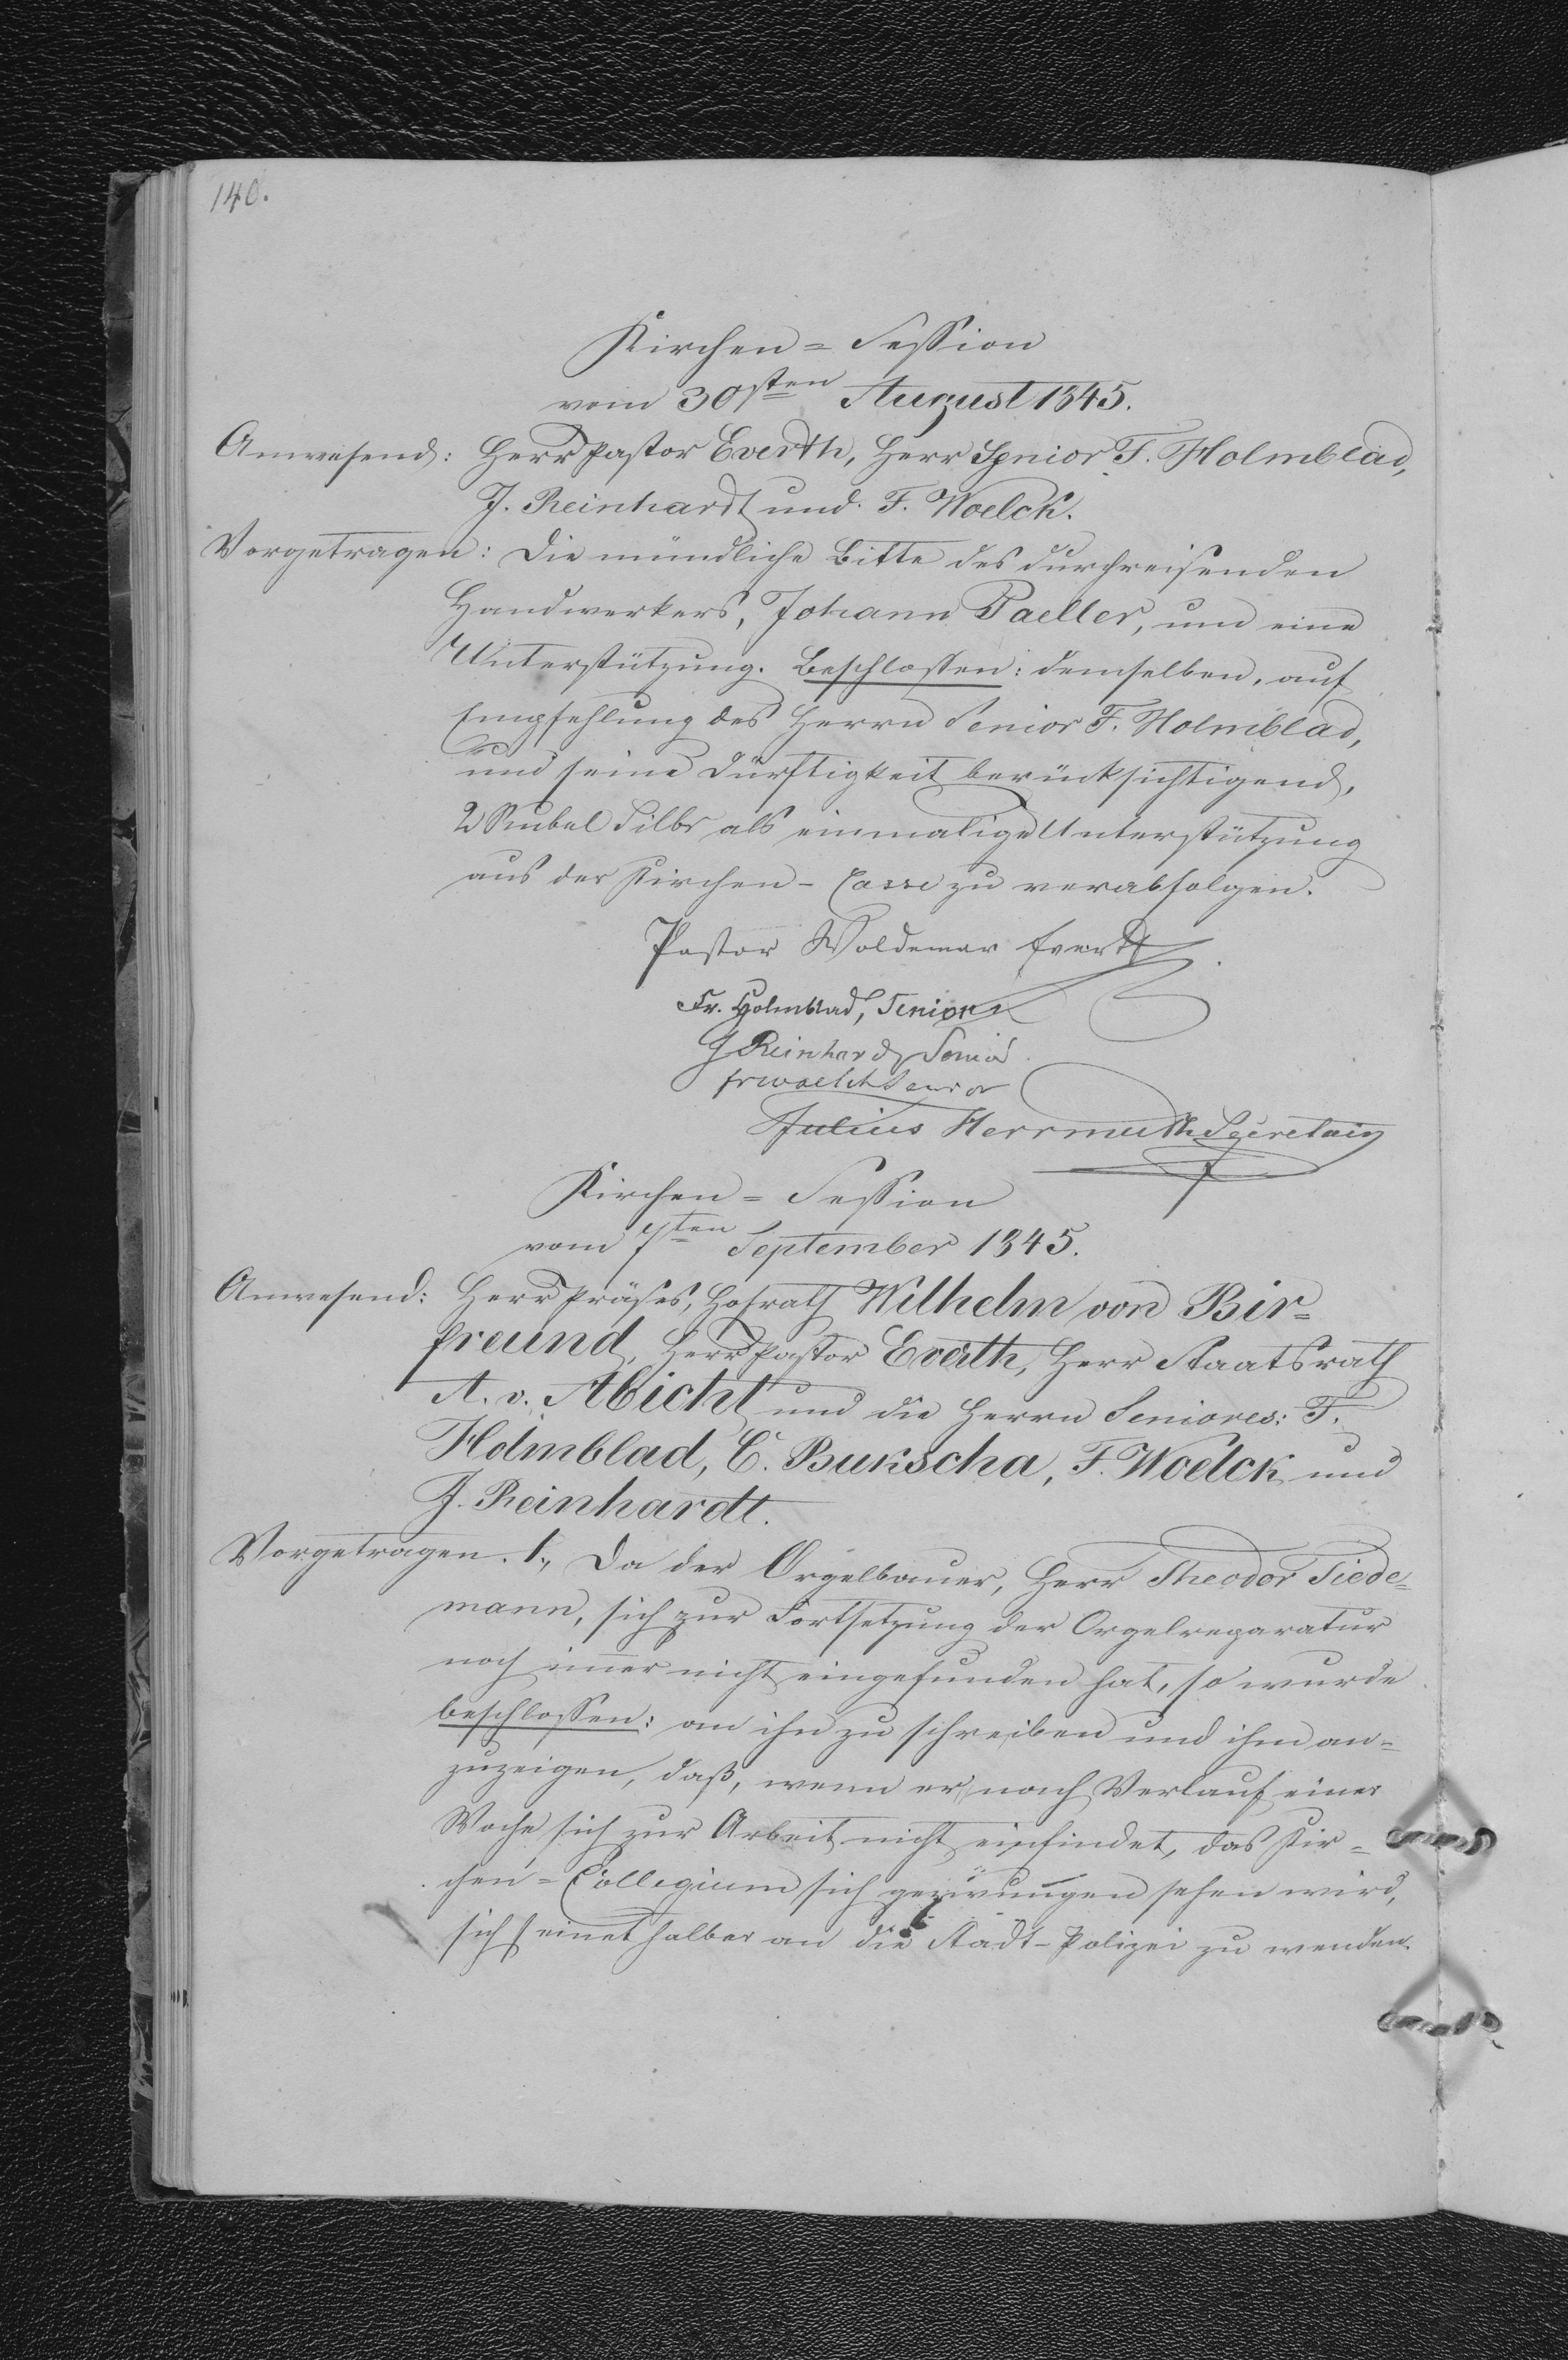 140.
Kirchen = Session
vom 30sten August 1845.
Anwesend: Herr Pastor Everth, Herr Senior F. Holmblad,
J. Reinhardt und F. Woelck.
Vorgetragen: Die mündliche Bitte des durchreisenden
Handwerkers, Johann Paeller, um eine
Unterstützung. Beschlossen: demselben, auf
Empfehlung des Herrn Senior F. Holmblad,
und seine Dürftigkeit berücksichtigend,
2 Rubel Silbr als einmalige Unterstützung
aus der Kirchen-Casse zu verabfolgen.
Pastor Woldemar Everth
Fr. Holmblad, Senior
J Reinhardt Senior
Fr Woelck Senior
Julius Herrmuth Secretair
Kirchen = Session
vom 7ten September 1845.
Anwesend: Herr Präses, Hofrath Wilhelm von Bir=
freund, Herr Pastor Everth, Herr Staatsrath
A. v. Abicht und die Herrn Seniores: F.
Holmblad, C. Bukscha, F. Woelck und
J. Reinhardt.
Vorgetragen. 1., Da der Orgelbauer, Herr Theodor Tiede=
mann, sich zur Fortsetzung der Orgelreparatur
noch im̅er nicht eingefunden hat, so wurde
beschlossen: an ihn zu schreiben und ihm an=
zuzeigen, daß, wenn er nach Verlauf einer
Woche sich zur Arbeit nicht einfindet, das Kir=
chen=Collegium sich gezwungen sehen wird,
sich seinethalber an die Stadt-Polizei zu wenden.